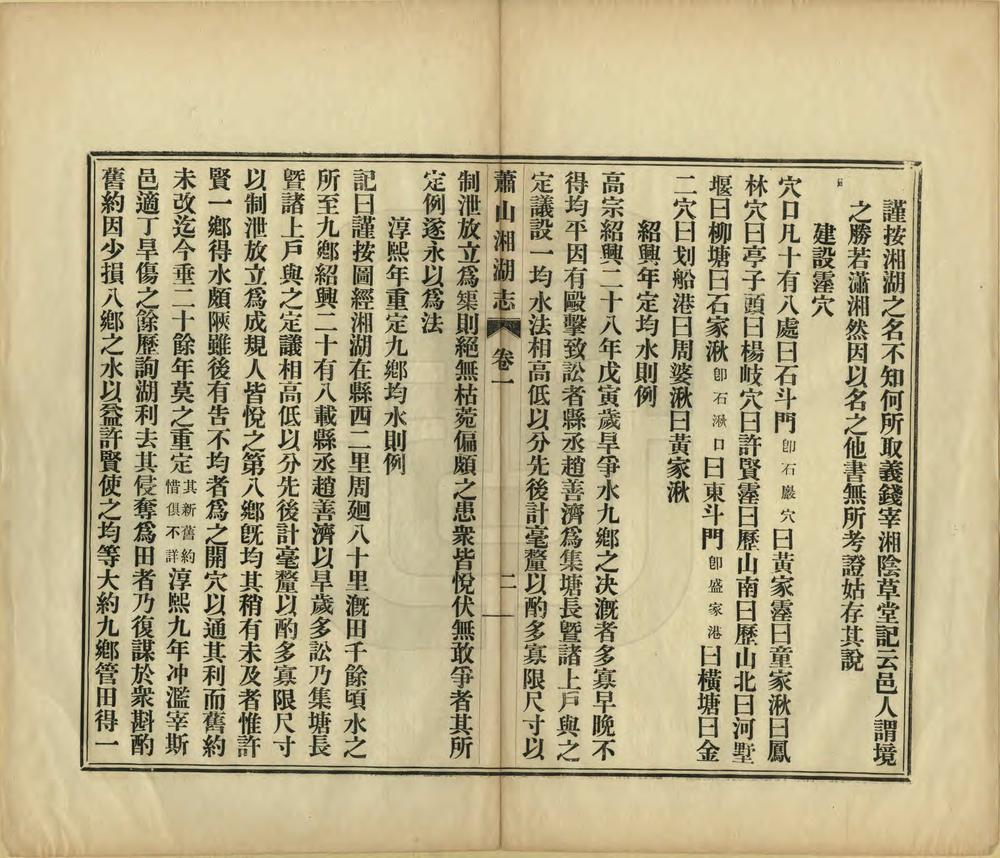 謹按湘湖之名不知何所取義錢宰湘陰草堂記云邑人謂境
之勝若瀟湘然因以名之他書無所考證姑存其說
建設霪穴
穴口凡十有八處曰石斗門即石巖穴曰黃家霪曰童家湫曰鳳
林穴曰亭子頭曰楊岐穴曰許賢霪曰歷山南曰歷山北曰河墅
堰曰柳塘曰石家湫即石湫口曰東斗門即盛家港曰橫塘曰金
二穴曰划船港曰周婆湫曰黃家湫
紹興年定均水則例
高宗紹興二十八年戊寅歲旱爭水九鄉之決溉者多寡早晚不
得均平因有毆擊致訟者縣丞趙善濟爲集塘長暨諸上戶與之
定議設一均水法相高低以分先後計毫釐以酌多寡限尺寸以
蕭山湘湖志 卷一 二
制泄放立爲榘則絕無枯菀偏頗之患衆皆悅伏無敢爭者其所
定例遂永以爲法
淳熙年重定九鄉均水則例
記曰謹按圖經湘湖在縣西二里周廻八十里溉田千餘頃水之
所至九鄉紹興二十有八載縣丞趙善濟以旱歲多訟乃集塘長
暨諸上戶與之定議相高低以分先後計毫釐以酌多寡限尺寸
以制泄放立爲成規人皆悅之第八鄉旣均其稍有未及者惟許
賢一鄉得水頗陿雖後有告不均者爲之開穴以通其利而舊約
未改迄今垂二十餘年莫之重定其新舊約惜俱不詳淳熙九年冲濫宰斯
邑適丁旱傷之餘歷詢湖利去其侵奪爲田者乃復謀於衆斟酌
舊約因少損八鄉之水以益許賢使之均等大約九鄉管田得一